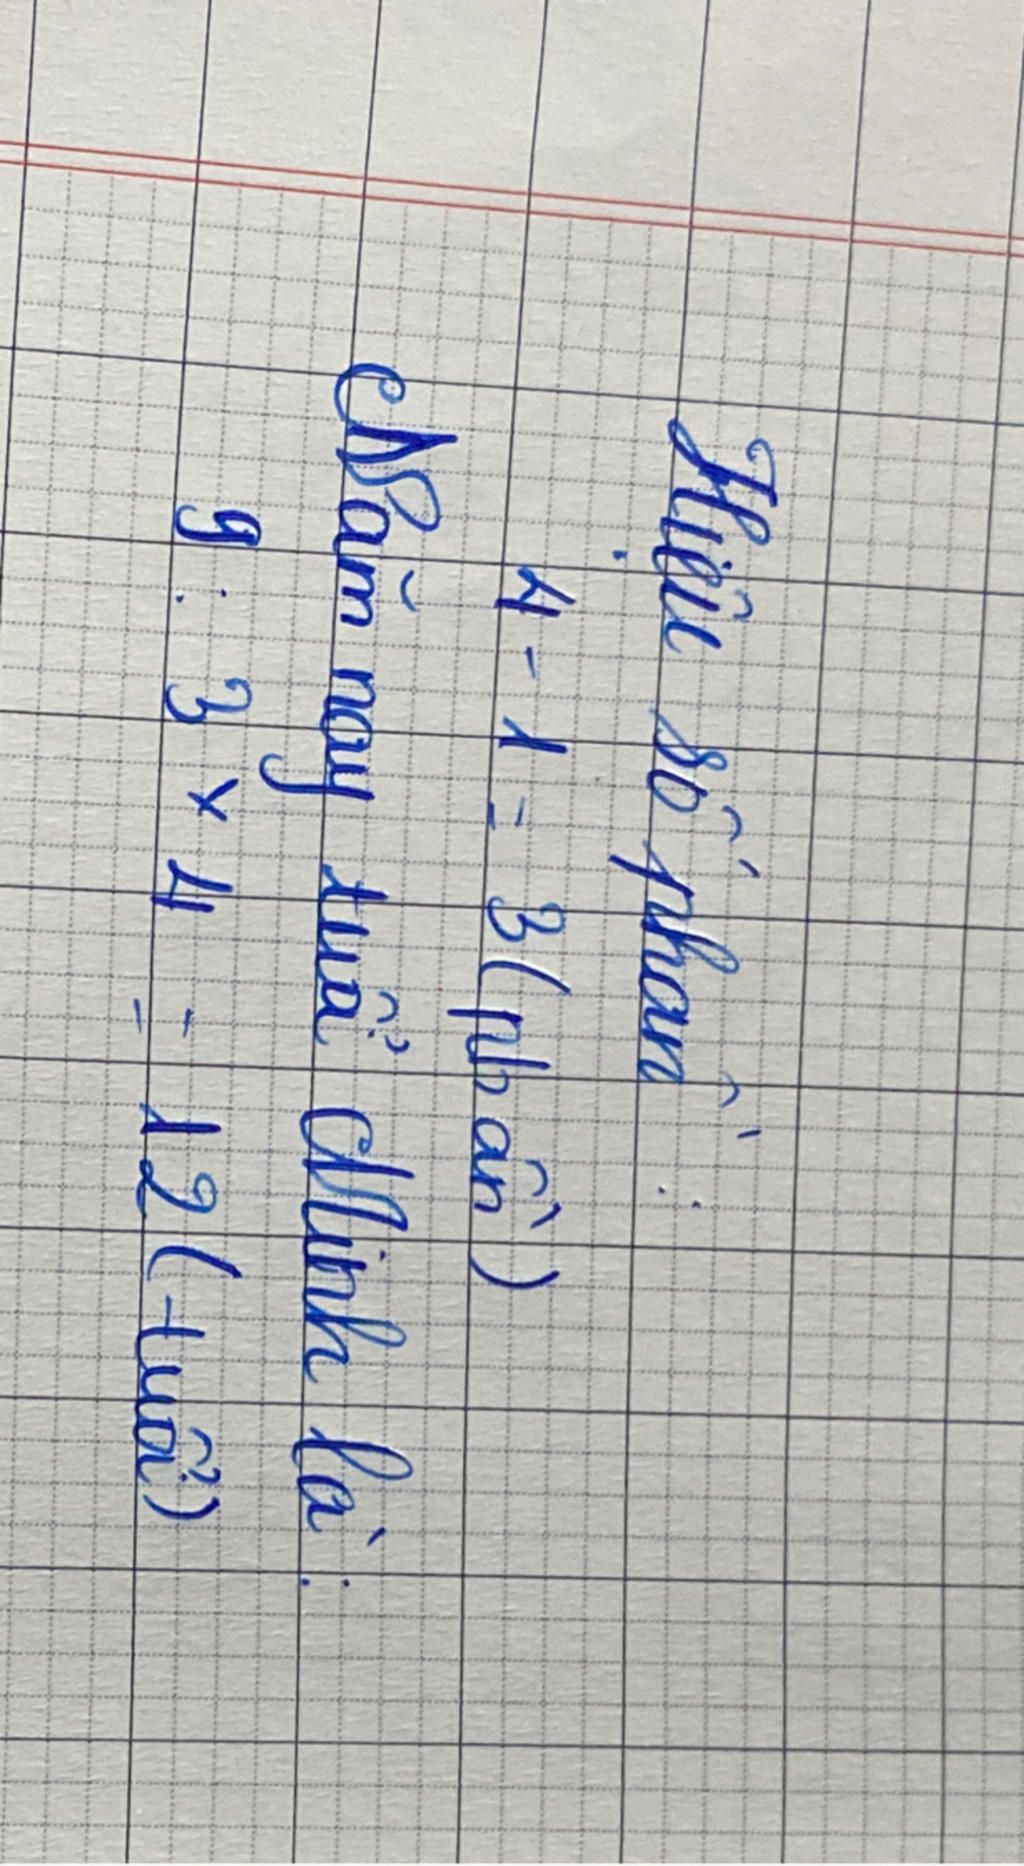 Hiệu số phần :
4 - 1 = 3 (phần)
Năm nay tuổi Minh là :
9 : 3 x 4 = 12 (tuổi)